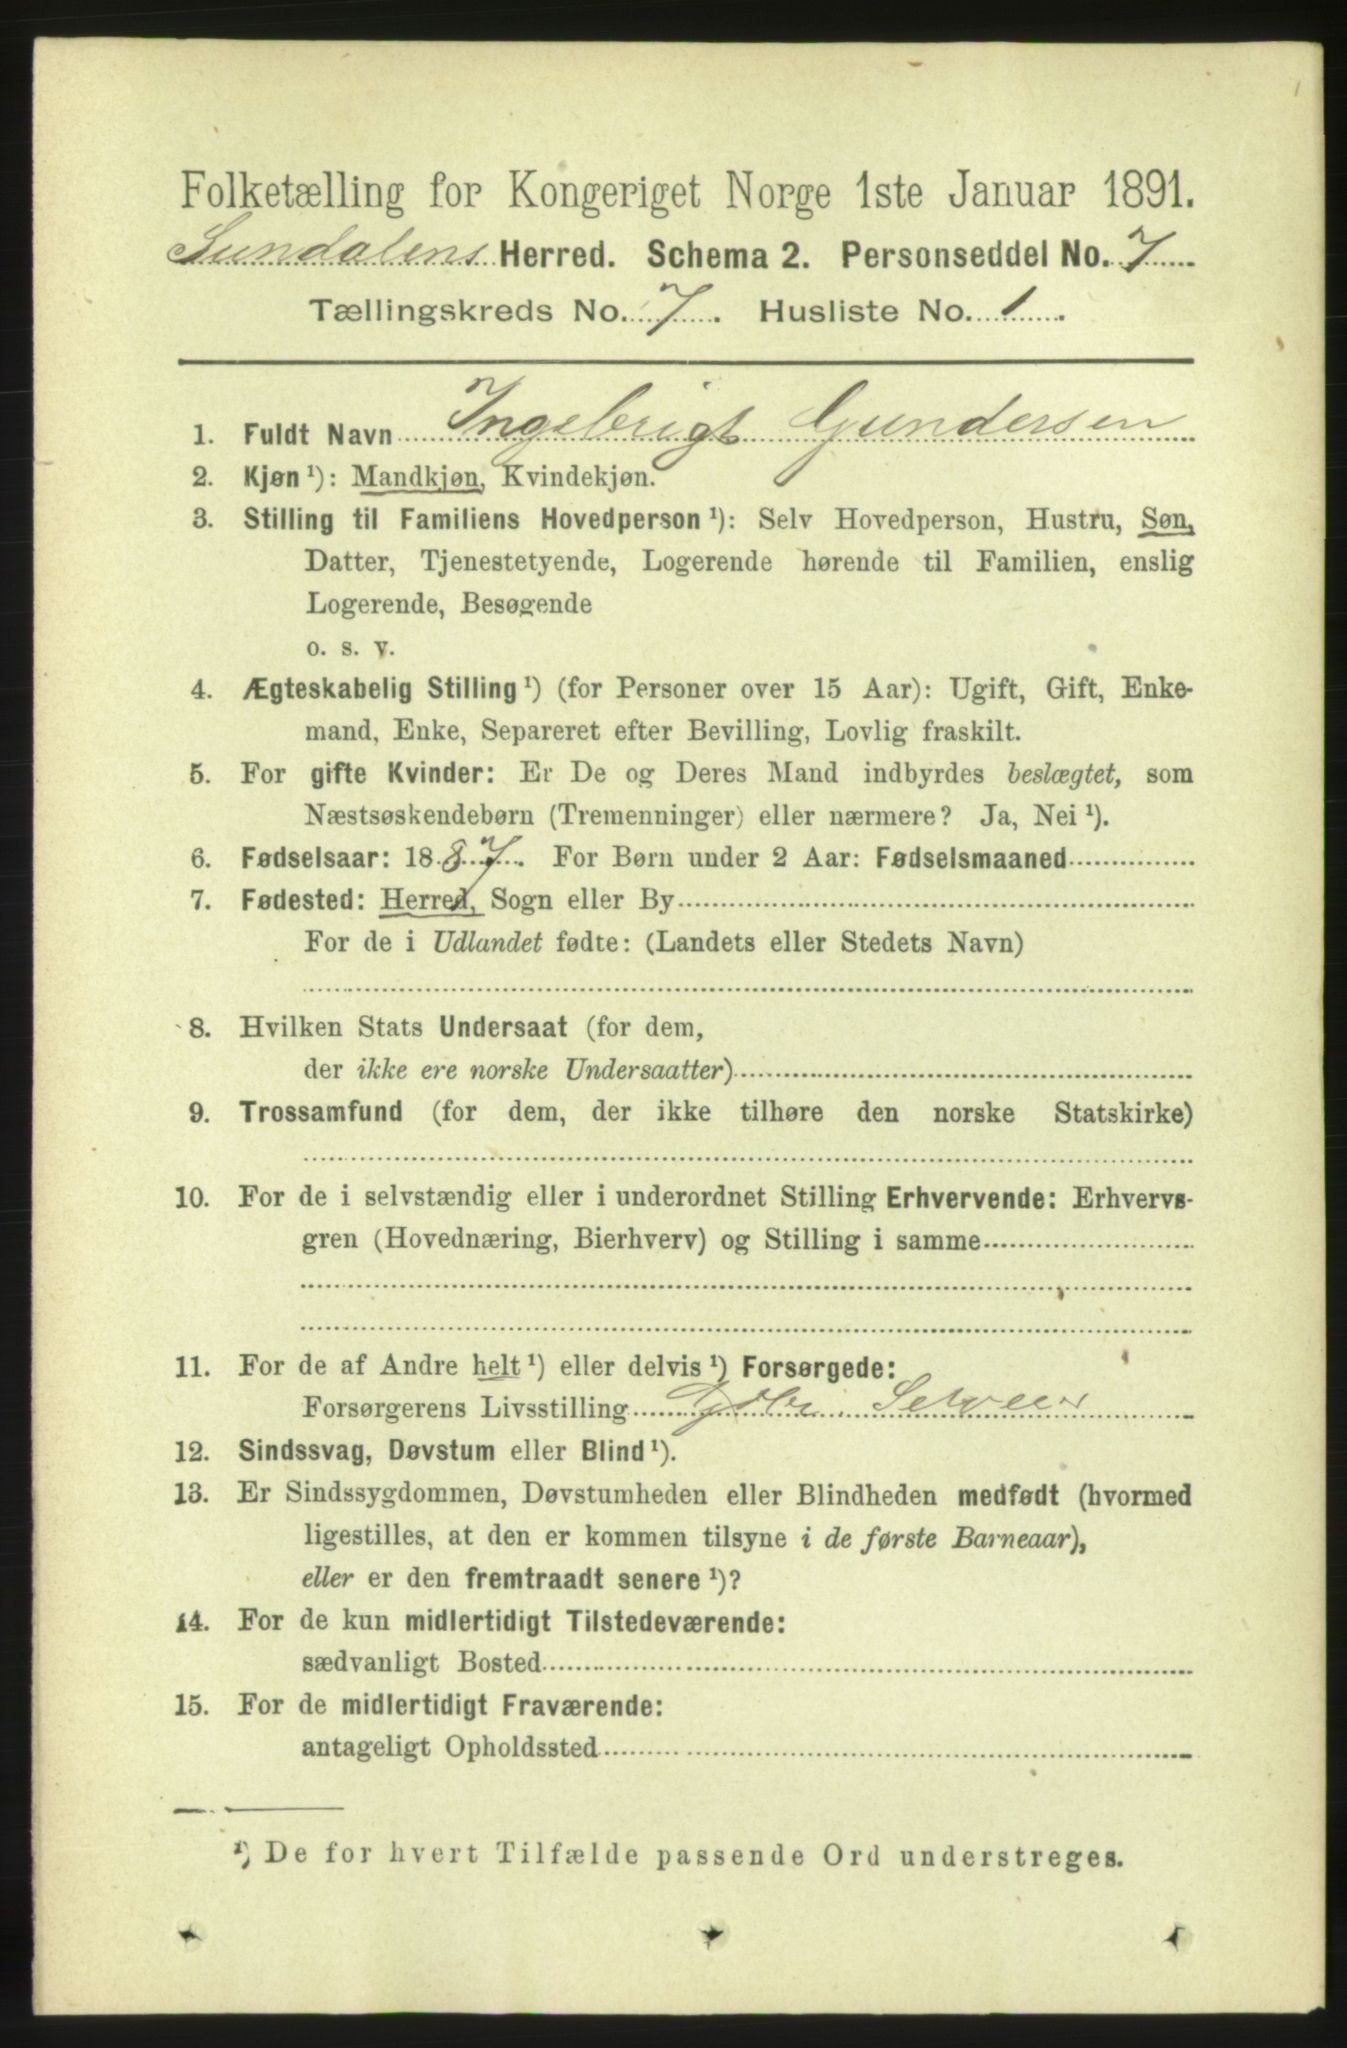 Folketælling for Kongeriget Norge 1ste Januar 1891.
Sundalens Herred. Schema 2. Personseddel No. 7
Tællingskreds No. 7. Husliste No. 1.
1. Fuldt Navn Ingebrigt Gundersen
2. Kjøn ¹): Mandkjøn, Kvindekjøn.
3. Stilling til Familiens Hovedperson ¹): Selv Hovedperson, Hustru, Søn,
Datter, Tjenestetyende, Logerende hørende til Familien, enslig
Logerende, Besøgende
o. s. v.
4. Ægteskabelig Stilling ¹) (for Personer over 15 Aar): Ugift, Gift, Enke-
mand, Enke, Separeret efter Bevilling, Lovlig fraskilt.
5. For gifte Kvinder: Er De og Deres Mand indbyrdes beslægtet, som
Næstsøskendebørn (Tremenninger) eller nærmere? Ja, Nei ¹).
6. Fødselsaar: 1887. For Børn under 2 Aar: Fødselsmaaned
7. Fødested: Herred, Sogn eller By
For de i Udlandet fødte: (Landets eller Stedets Navn)
8. Hvilken Stats Undersaat (for dem,
der ikke ere norske Undersaatter)
9. Trossamfund (for dem, der ikke tilhøre den norske Statskirke)
10. For de i selvstændig eller i underordnet Stilling Erhvervende: Erhvervs-
gren (Hovednæring, Bierhverv) og Stilling i samme
11. For de af Andre helt ¹) eller delvis ¹) Forsørgede:
Forsørgerens Livsstilling
12. Sindssvag, Døvstum eller Blind ¹).
13. Er Sindssygdommen, Døvstumheden eller Blindheden medfødt (hvormed
ligestilles, at den er kommen tilsyne i de første Barneaar),
eller er den fremtraadt senere ¹)?
14. For de kun midlertidigt Tilstedeværende:
sædvanligt Bosted
15. For de midlertidigt Fraværende:
antageligt Opholdssted
¹) De for hvert Tilfælde passende Ord understreges.